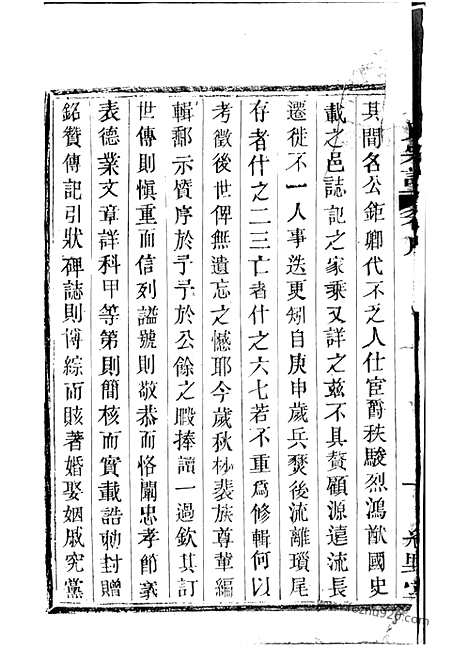 其間名公鉅卿代不乏人仕宦爵秩駿烈鴻猷國史
載之邑誌記之家乘又詳之茲不具贅顧源遠流長
遷徙不一人事迭更矧自庚申歲兵燹後流離瑣尾
存者什之二三亡者什之六七若不重為修輯何以
考徵後世俾無遺忘之憾耶今歲秋杪裴族尊輩編
輯鄱示贊序於予予於公餘之暇捧讀一過欽其訂
世傳則慎重而信列謚號則敬恭而恪闡忠孝節義
表德業文章詳科甲等第則簡核而實載誥勅封贈
銘贊傳記引狀碑誌則博綜而賅著婚娶姻戚究黨